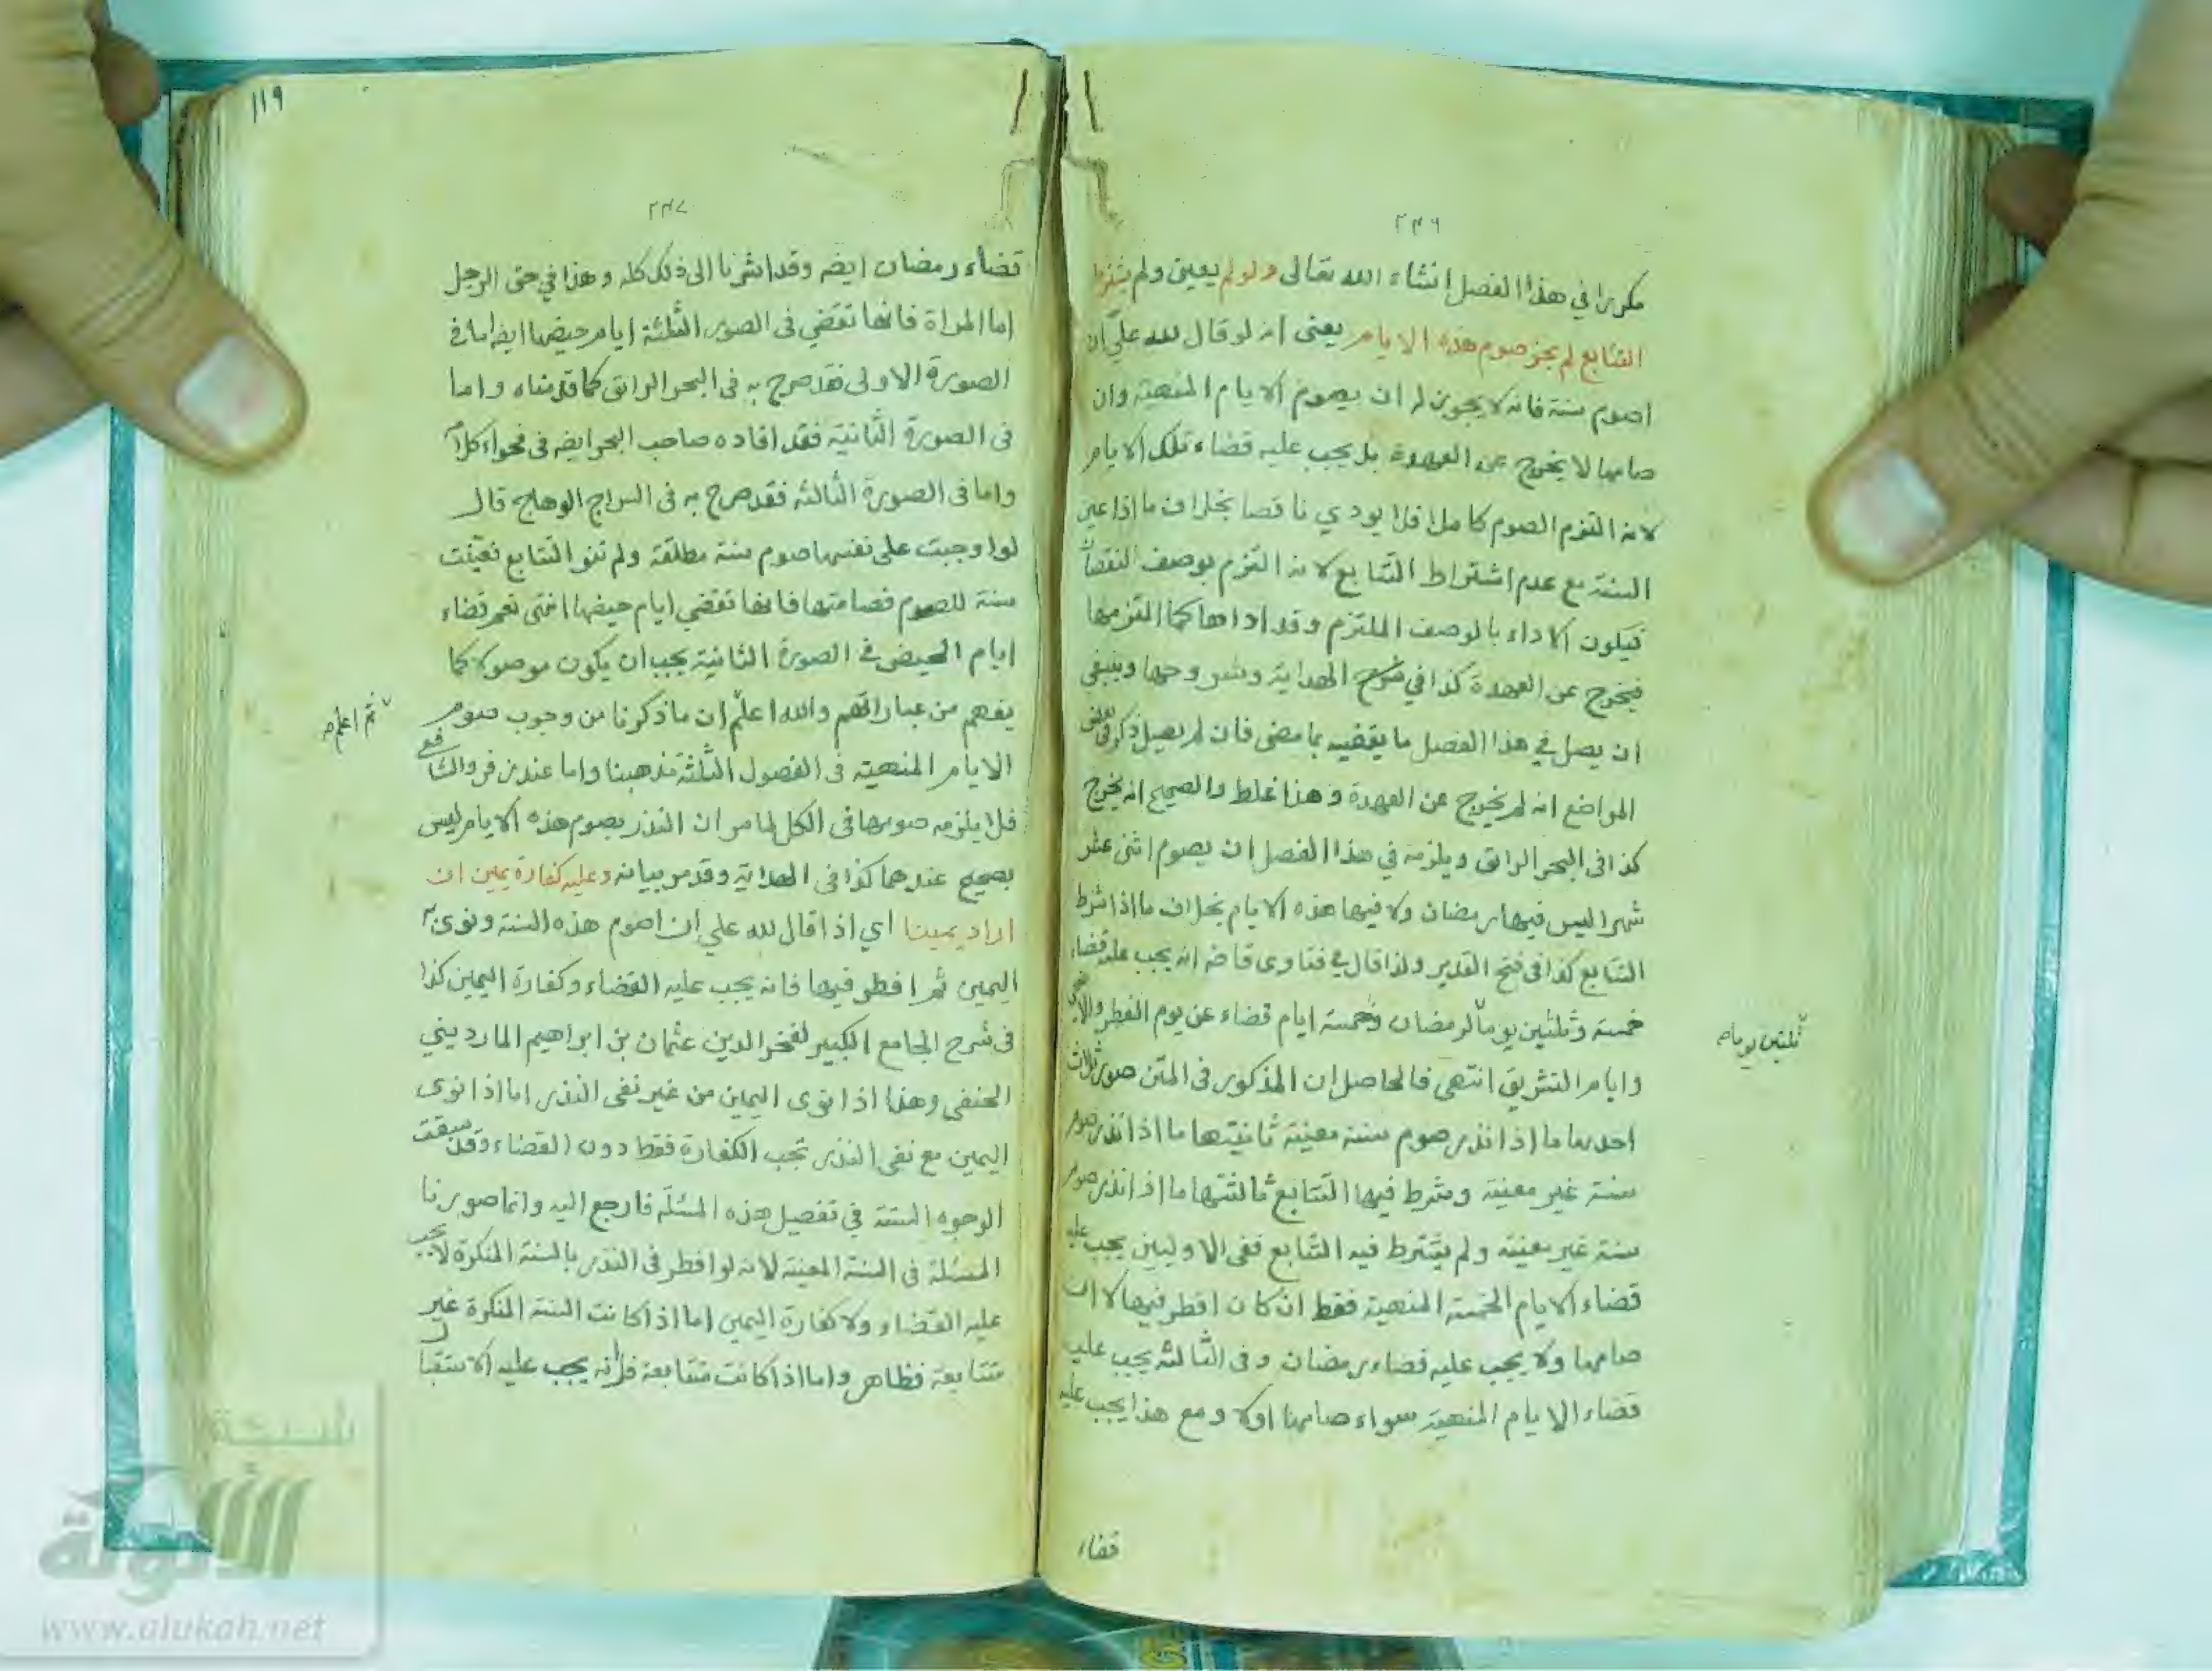 ٢٣٦
مكررا في هذا الفصل انشاء الله تعالى ولو لم يعين ولم يشترط
التتابع لم يجز صوم هذه الايام يعنى انه لو قال لله علي ان
اصوم سنة فانه لا يجوز له ان يصوم الايام المنهية وان
صامها لا يخرج عن العهدة بل يجب عليه قضاء تلك الايام
لانه التزم الصوم كاملا فلا يودي ناقصا بخلاف ما اذا عين
السنة مع عدم اشتراط التتابع لانه التزم بوصف النقصان
فيكون الاداء بالوصف الملتزم وقد اداها كما التزمها
فيخرج عن العهدة كذا في الهداية وشروحها وينبغي
ان يصل في هذا الفصل ما يقضيه بما مضى فان لم يصل ذكر في بعض
المواضع انه لم يخرج عن العهدة وهذا غلط والصحيح انه يخرج
كذا في البحر الرائق ويلزمه في هذا الفصل ان يصوم اثنى عشر
شهرا ليس فيها رمضان ولا فيها هذه الايام بخلاف ما اذا شرط
التتابع كذا في فتح القدير ولذا قال في فتاوى قاضخان يجب عليه قضاء
خمسة وثلثين يوما لرمضان وخمسة ايام قضاء عن يوم الفطر والاضحى
ثلثين يوما صح
وايام التشريق انتهى فالحاصل ان المذكور في المتن صور ثلاث
احدها ما اذا نذر صوم سنة معينة ثانيتها ما اذا نذر صوم
سنة غير معينة وشرط فيها التتابع ثالثتها ما اذا نذر صوم
سنة غير معينة ولم يشترط فيه التتابع ففى الاوليين يجب عليه
قضاء الايام الخمسة المنهية فقط ان كان افطر فيها لا ان
صامها ولا يجب عليه قضاء رمضان وفى الثالثة يجب عليه
قضاء الايام المنهية سواء صامها اولا ومع هذا يجب عليه
قضاء
١١٩
٢٣٧
قضاء رمضان ايضه وقد اشرنا الى ذلك كله وهذا في حق الرجل
اما المراة فانها تقضي فى الصور الثلثة ايام حيضها ايضه اما في
الصورة الاولى فقد صرح به فى البحر الرائق كما قدمناه واما
فى الصورة الثانية فقد افاده صاحب البحر ايضه فى فحواء كلامه
واما فى الصورة الثالثة فقد صرح به فى السراج الوهاج قال
لو اوجبت على نفسها صوم سنة مطلقة ولم تنو التتابع تعينت
سنة للصوم فصامتها فانها تقضي ايام حيضها انتهى نعم قضاء
ايام الحيض في الصورة الثانية يجب ان يكون موصولا كما
يفهم من عباراتهم والله اعلم ان ما ذكرنا من وجوب صوم
ثم اعلم صح
الايام المنهية فى الفصول الثلثة مذهبنا واما عند زفر والشافعي
فلا يلزمه صومها فى الكل لما مر ان النذر بصوم هذه الايام ليس
بصحيح عندهما كذا فى الهداية وقد مر بيانه وعليه كفارة يمين ان
اراد يمينا اي اذا قال لله علي ان اصوم هذه السنة ونوى به
اليمين ثم افطر فيها فانه يجب عليه القضاء وكفارة اليمين كذا
فى شرح الجامع الكبير لفخر الدين عثمان بن ابراهيم المارديني
الحنفي وهذا اذا نوى اليمين من غير نفى النذر اما اذا نوى
اليمين مع نفى النذر تجب الكفارة فقط دون القضاء وقد سبقت
الوجوه الستة في تفصيل هذه المسئلة فارجع اليه وانما صورنا
المسئلة فى السنة المعينة لانه لو افطر فى النذر بالسنة المنكرة لا يجب
عليه القضاء ولا كفارة اليمين اما اذا كانت السنة المنكرة غير
متتابعة فظاهر واما اذا كانت متتابعة فلانه يجب عليه الاستقبال
شبكة
الألوكة
www.alukah.net